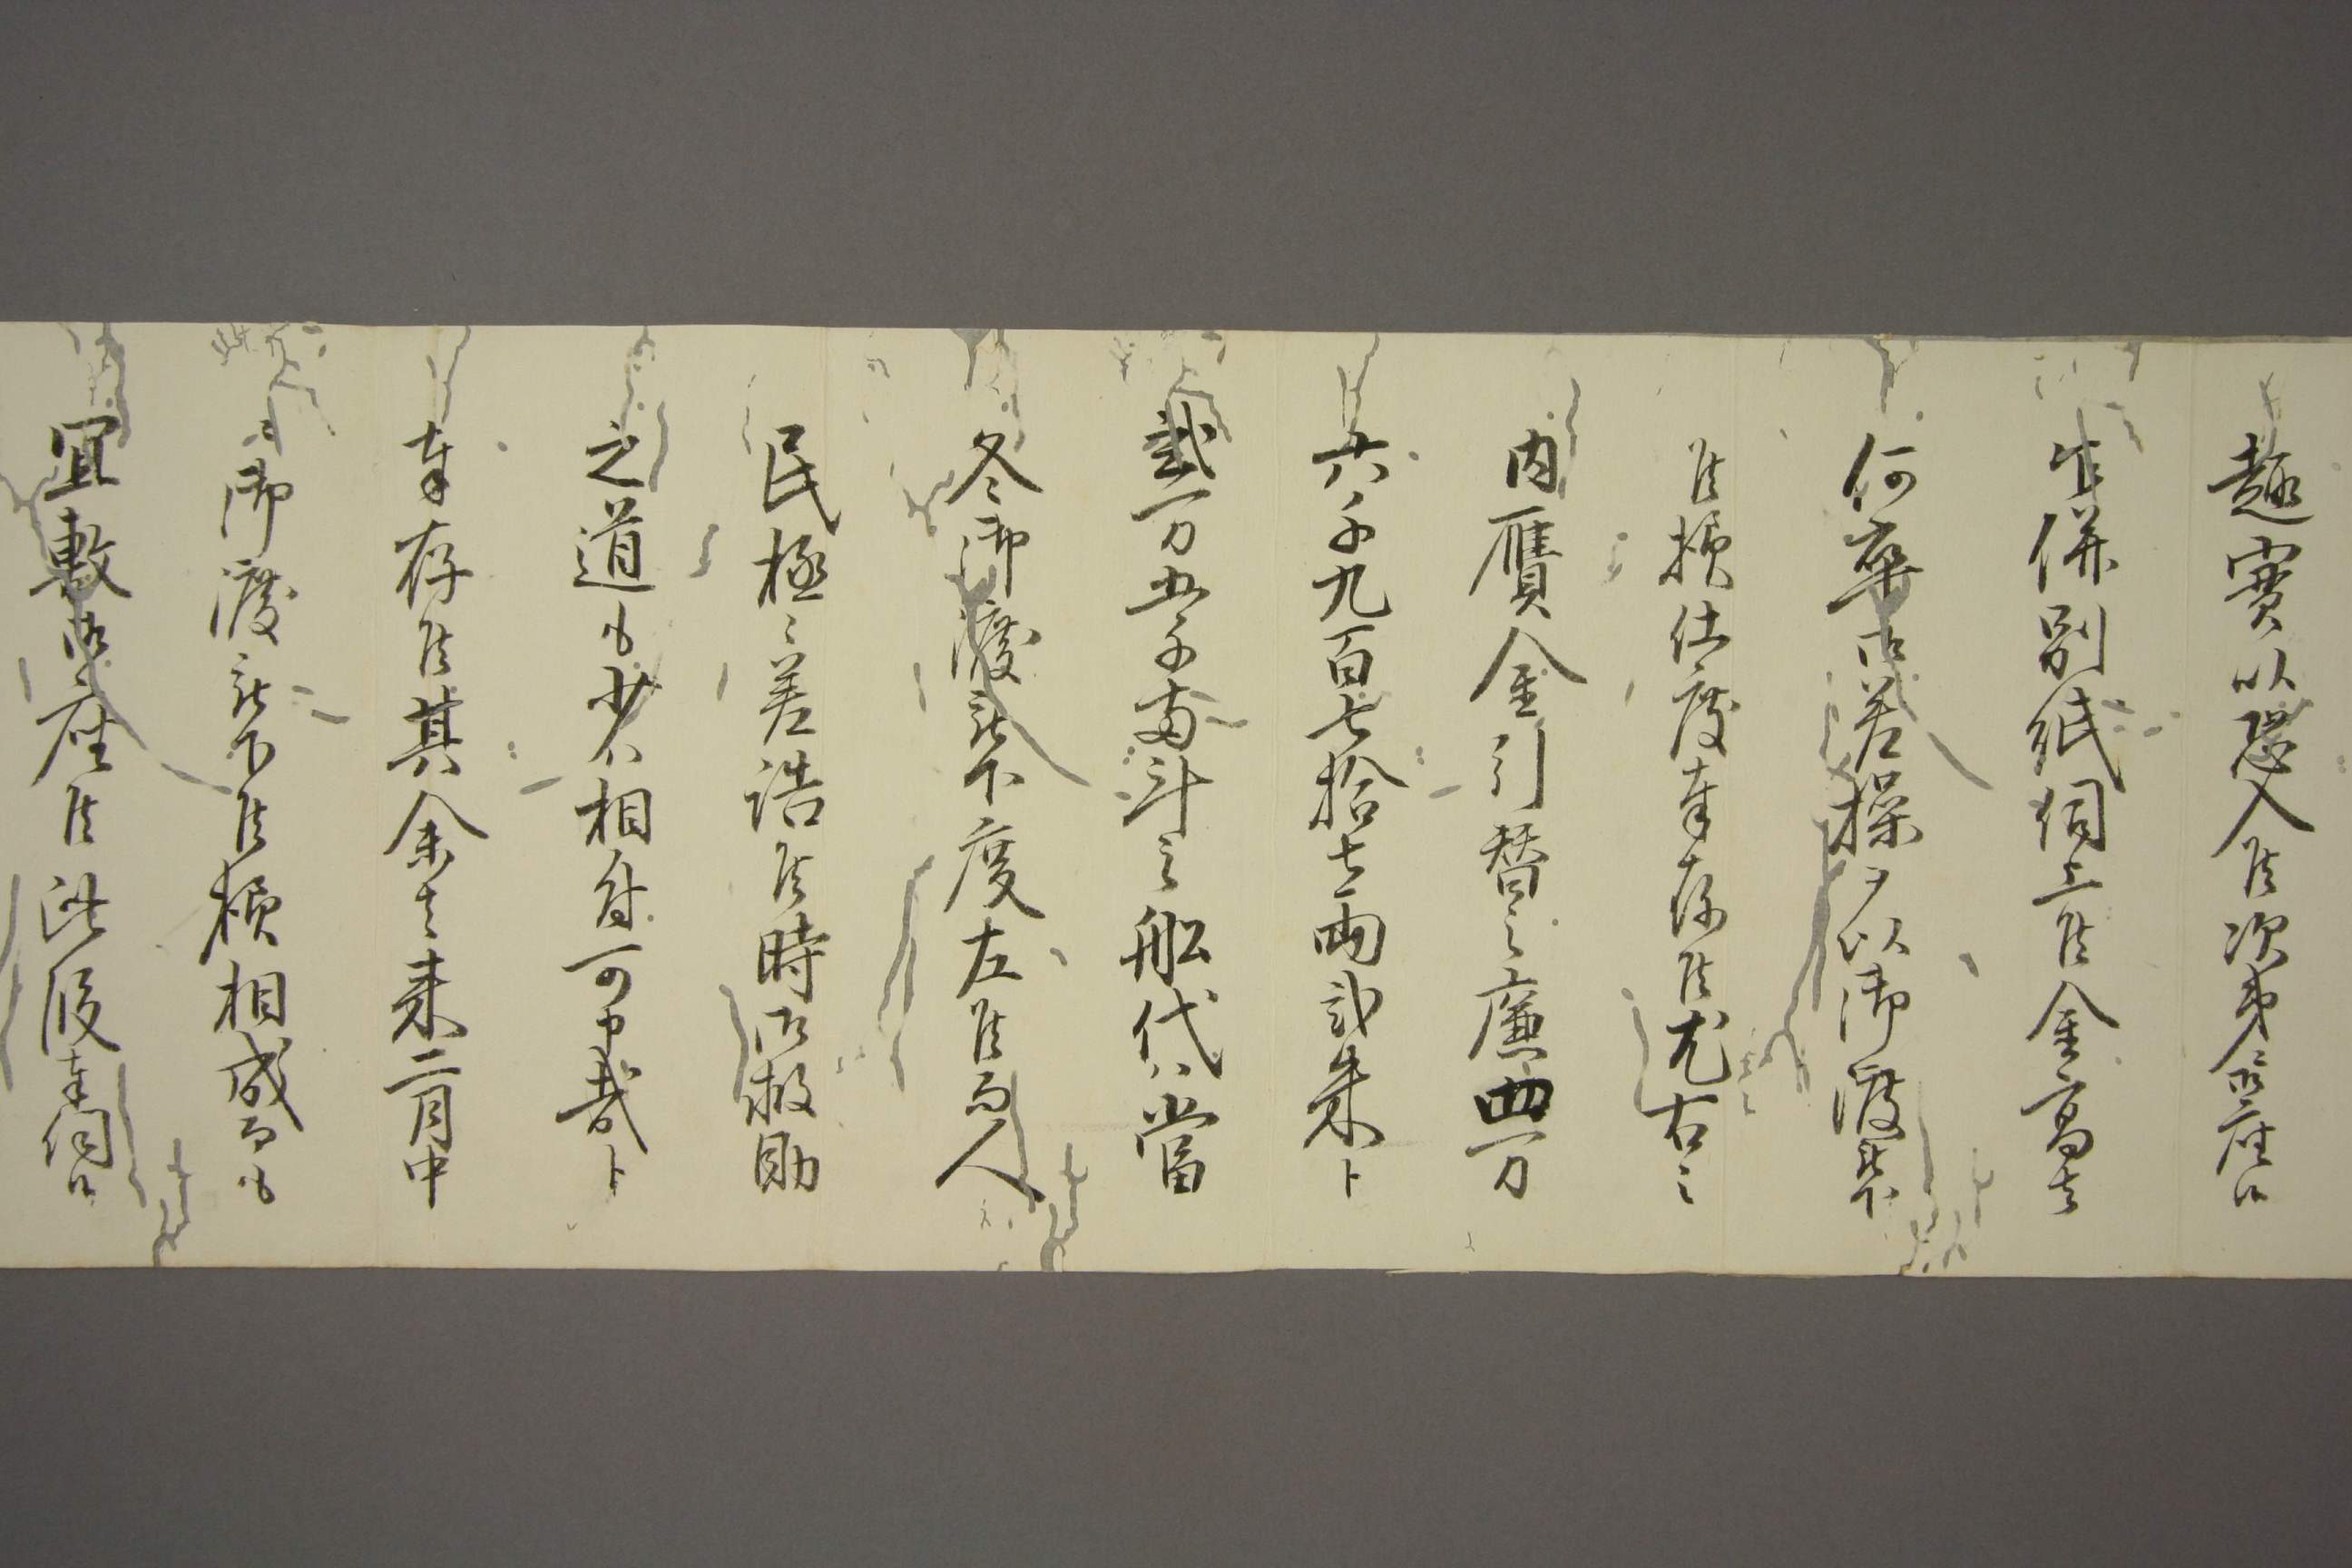 趣実以恐入候次第ニ御座候
乍併別紙伺上候金高者
何卒御差操ヲ以御渡被下
候様仕度奉存候尤右之
内贋金引替之廉四万
六千九百七拾七両弐朱ト
弐万五千両斗之船代ハ当
冬御渡被下度左候而人
民極々差詰候時御救助
之道も少ハ相付可申哉ト
奉存候其余者来二月中
御渡被下候様相成而も
宜敷御座候此段奉伺候